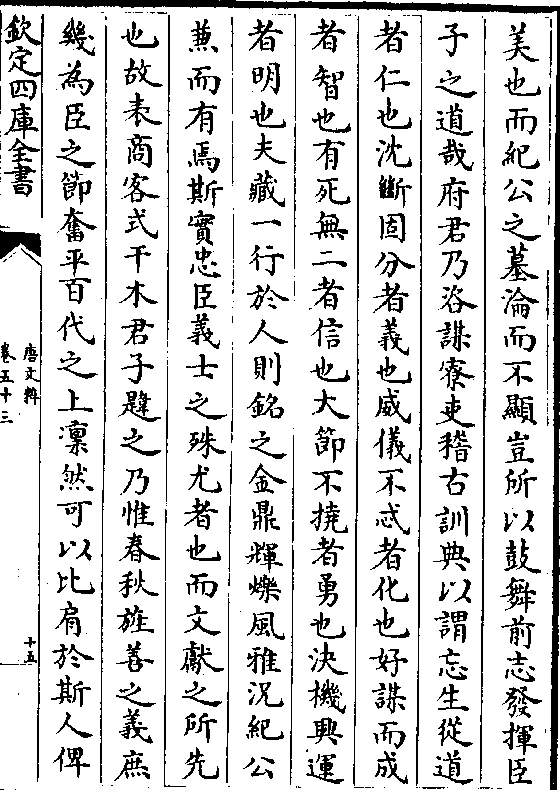 美也而紀公之墓淪而不顯豈所以鼓舞前志發揮臣
子之道哉府君乃洽謀寮吏稽古訓典以謂忘生從道
者仁也沈斷固分者義也威儀不忒者化也好謀而成
者智也有死無二者信也大節不撓者勇也決機興運
者明也夫藏一行於人則銘之金鼎輝爍風雅況紀公
兼而有焉斯實忠臣義士之殊尤者也而文獻之所先
也故表商容式干木君子韙之乃惟春秋旌善之義庶
幾為臣之節奮乎百代之上凜然可以比肩於斯人俾
欽定四庫全書
唐文粹
卷五十三
十五